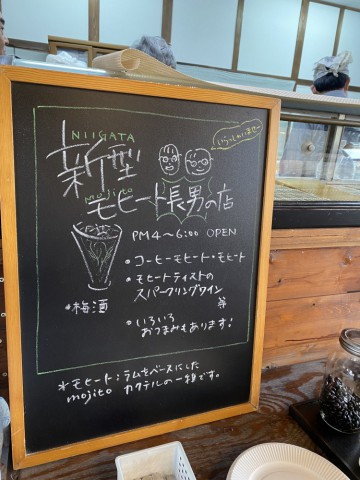 NIIGATA
新型
mojito
モヒート長男の店
いらっしゃいませ〜
PM4〜6:00 OPEN
・コーヒーモヒート・モヒート
・モヒートテイストの
スパークリングワイン
・梅酒
等
・いろいろ
おつまみもあります!
＊モヒート:ラムをベースにした
mojito カクテルの一種です。